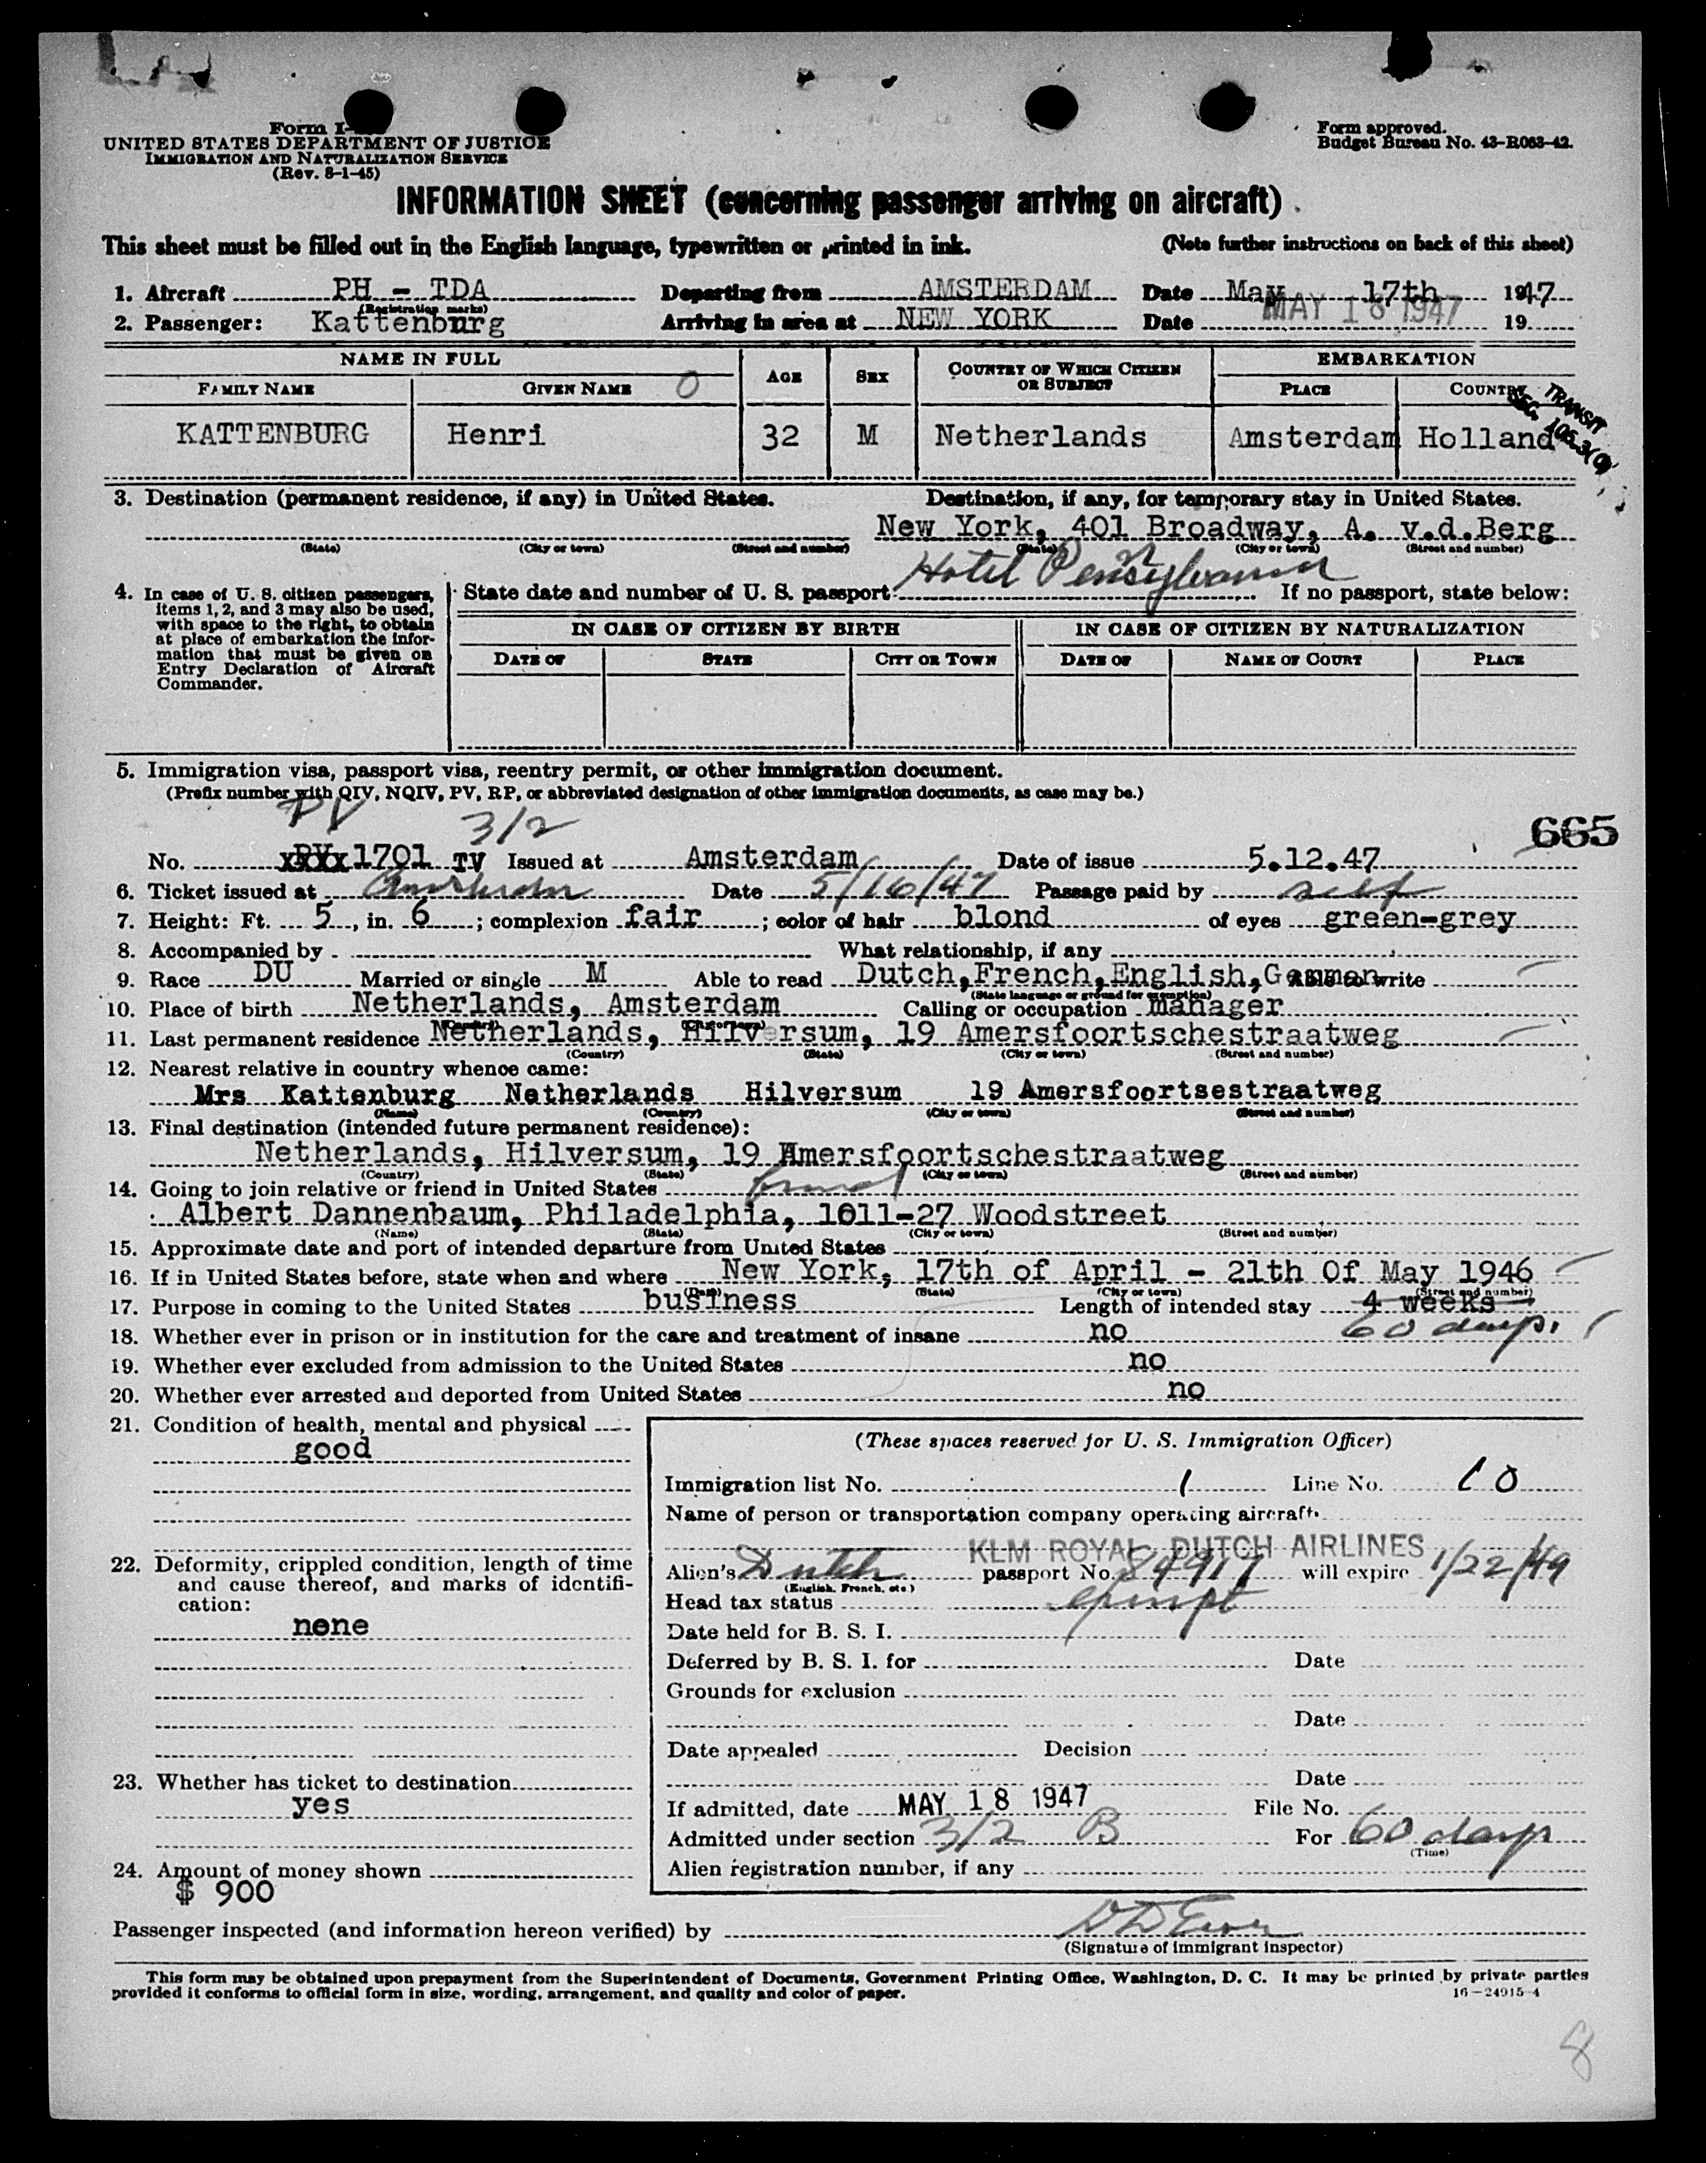 Form I-
UNITED STATES DEPARTMENT OF JUSTICE
IMMIGRATION AND NATURALIZATION SERVICE
(Rev. 8-1-45)
Form approved.
Budget Bureau No. 43-R063-42.
INFORMATION SHEET (concerning passenger arriving on aircraft)
This sheet must be filled out in the English language, typewritten or printed in ink. (Note further instructions on back of this sheet)
1. Aircraft PH - TDA Departing from AMSTERDAM Date May 17th 1947
(Registration marks)
2. Passenger: Kattenburg Arriving in area at NEW YORK Date MAY 18 1947 19
NAME IN FULL AGE SEX COUNTRY OF WHICH CITIZEN OR SUBJECT EMBARKATION
FAMILY NAME GIVEN NAME O PLACE COUNTRY
TRANSIT
SEC. 105.3(C)
KATTENBURG Henri 32 M Netherlands Amsterdam Holland
3. Destination (permanent residence, if any) in United States. Destination, if any, for temporary stay in United States.
New York, 401 Broadway, A. v.d.Berg
(State) (City or town) (Street and number) (State) (City or town) (Street and number)
Hotel Pensylvania
n
4. In case of U. S. citizen passengers, items 1, 2, and 3 may also be used, with space to the right, to obtain at place of embarkation the information that must be given on Entry Declaration of Aircraft Commander.
State date and number of U. S. passport: If no passport, state below:
IN CASE OF CITIZEN BY BIRTH IN CASE OF CITIZEN BY NATURALIZATION
DATE OF STATE CITY OR TOWN DATE OF NAME OF COURT PLACE
5. Immigration visa, passport visa, reentry permit, or other immigration document.
(Prefix number with QIV, NQIV, PV, RP, or abbreviated designation of other immigration documents, as case may be.)
PV 3/2 665
No. XXXX 1701 TV Issued at Amsterdam Date of issue 5.12.47
6. Ticket issued at Amsterdam Date 5/16/47 Passage paid by self
7. Height: Ft. 5, in. 6; complexion fair; color of hair blond of eyes green-grey
8. Accompanied by What relationship, if any
9. Race DU Married or single M Able to read Dutch,French,English,German Able to write
(State language or ground for exemption)
10. Place of birth Netherlands, Amsterdam Calling or occupation manager
(Country) (City or town)
11. Last permanent residence Netherlands, Hilversum, 19 Amersfoortschestraatweg
(Country) (State) (City or town) (Street and number)
12. Nearest relative in country whence came:
Mrs Kattenburg Netherlands Hilversum 19 Amersfoortsestraatweg
(Name) (Country) (City or town) (Street and number)
13. Final destination (intended future permanent residence):
Netherlands, Hilversum, 19 Amersfoortschestraatweg
(Country) (State) (City or town) (Street and number)
14. Going to join relative or friend in United States friend
Albert Dannenbaum, Philadelphia, 1011-27 Woodstreet
(Name) (State) (City or town) (Street and number)
15. Approximate date and port of intended departure from United States
16. If in United States before, state when and where New York, 17th of April - 21th Of May 1946
(Date) (State) (City or town) (Street and number)
17. Purpose in coming to the United States business Length of intended stay 4 weeks
60 days.
18. Whether ever in prison or in institution for the care and treatment of insane no
19. Whether ever excluded from admission to the United States no
20. Whether ever arrested and deported from United States no
21. Condition of health, mental and physical
good
22. Deformity, crippled condition, length of time and cause thereof, and marks of identification:
none
23. Whether has ticket to destination
yes
24. Amount of money shown
$ 900
(These spaces reserved for U. S. Immigration Officer)
Immigration list No. 1 Line No. 10
Name of person or transportation company operating aircraft
KLM ROYAL DUTCH AIRLINES
Alien's Dutch passport No. 84917 will expire 1/22/49
(English, French, etc.)
Head tax status exempt
Date held for B. S. I.
Deferred by B. S. I. for Date
Grounds for exclusion
Date
Date appealed Decision
Date
If admitted, date MAY 18 1947 File No.
Admitted under section 3/2 B For 60 days
(Time)
Alien registration number, if any
Passenger inspected (and information hereon verified) by
(Signature of immigrant inspector)
This form may be obtained upon prepayment from the Superintendent of Documents, Government Printing Office, Washington, D. C. It may be printed by private parties
provided it conforms to official form in size, wording, arrangement, and quality and color of paper. 16—24915-4
8